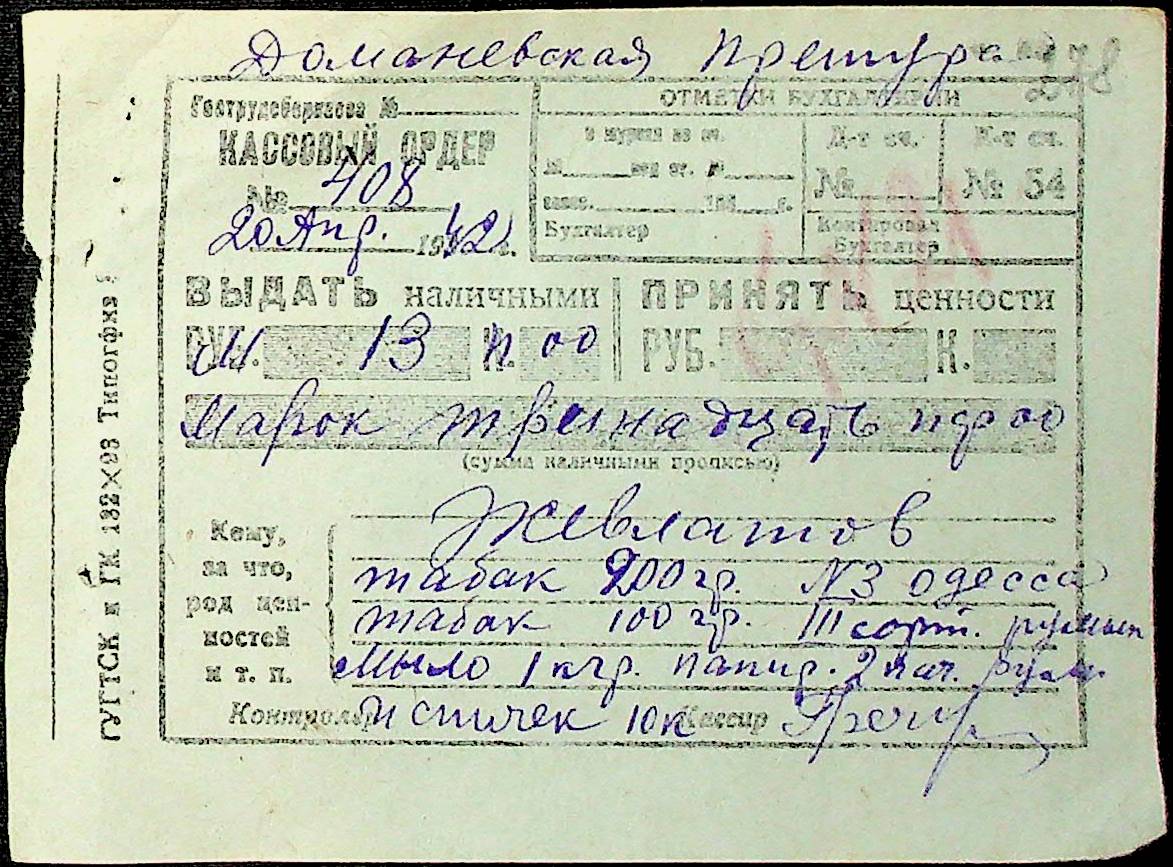 Доманевская Претура
278
Гострудсберкасса №
КАССОВЫЙ ОРДЕР
№ 408
20 Апр. 1942 г.
ОТМЕТКИ БУХГАЛТЕРИИ
Бухгалтер
Д-т сч.
№
К-т сч.
№ 54
Контировал
Бухгалтер
ВЫДАТЬ наличными
М. 13 п 00
ПРИНЯТЬ ценности
РУБ. К.
Марок тринадцать пф 00
(сумма наличными прописью)
Кему,
за что,
род цен-
ностей
и т. п.
Жевлатов
табак 200 гр. N3 одесса
табак 100 гр. III сорт. румын
Мыло 1 кгр. папир. 2 пач. рум.
Контролер
Кассир
спичек 10к
ГУГТСК и ГК 132×93 Типогфия